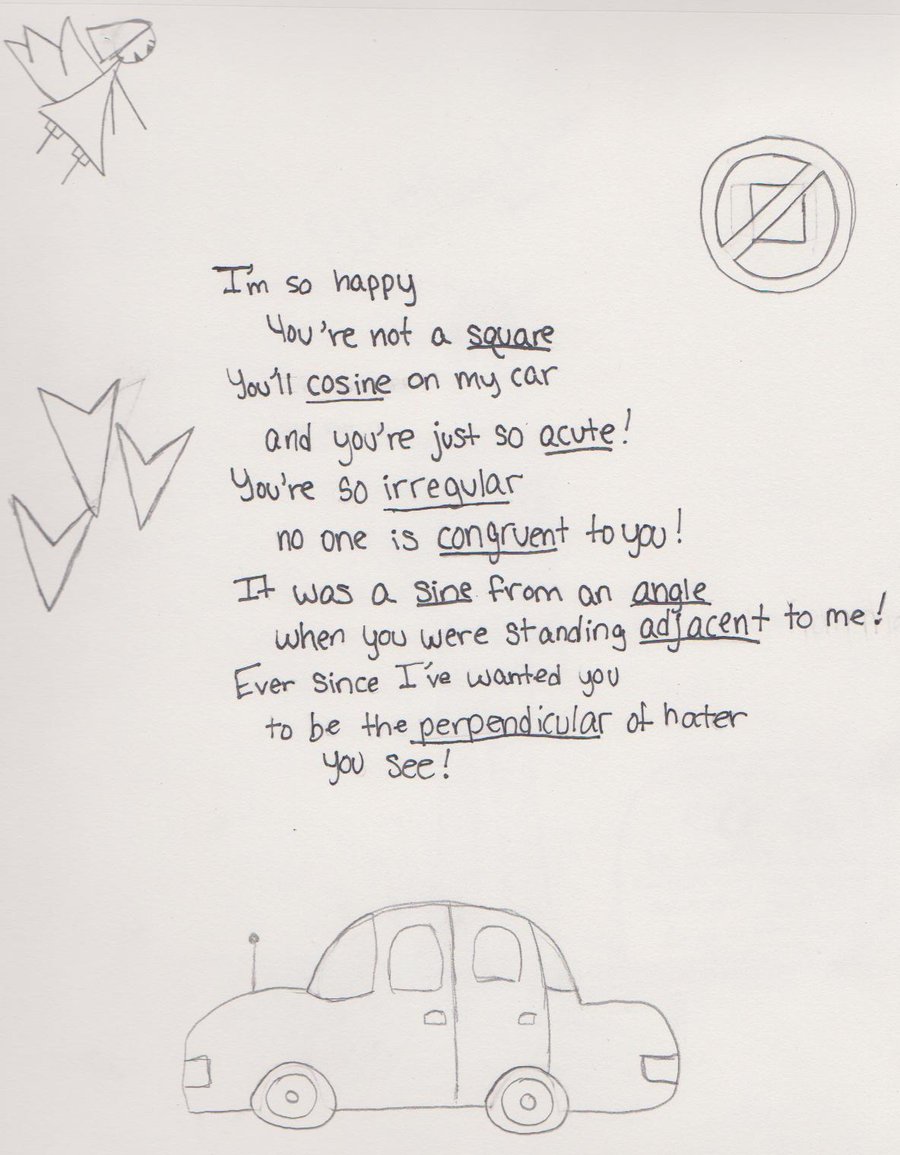 I'm so happy
You're not a square
You'll cosine on my car
and you're just so acute!
You're so irregular
no one is congruent to you!
It was a sine from an angle
when you were standing adjacent to me!
Ever since I've wanted you
to be the perpendicular of hater
you see!